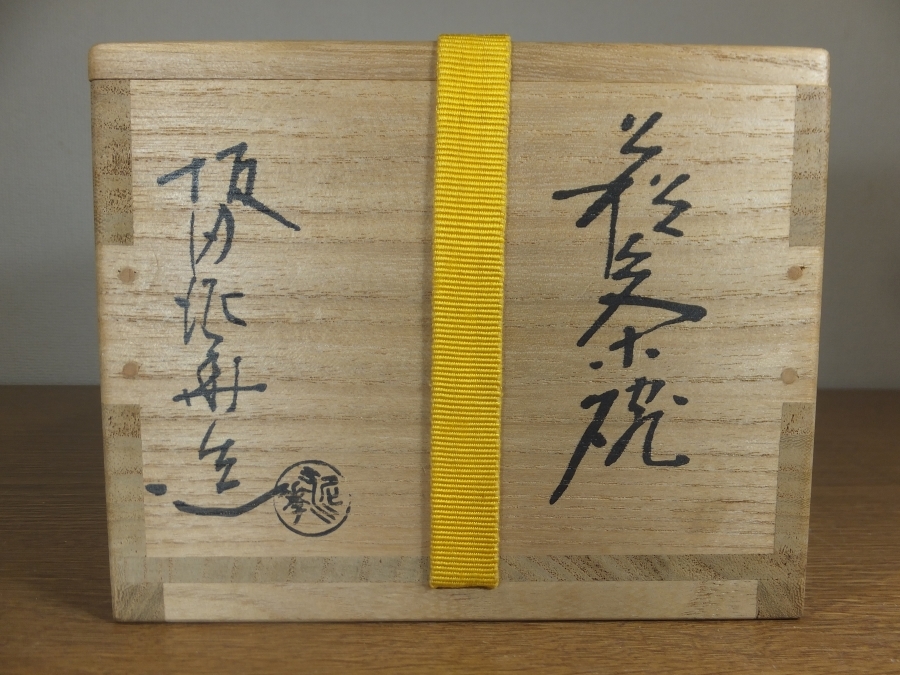 萩茶碗
坂田泥華造
泥華